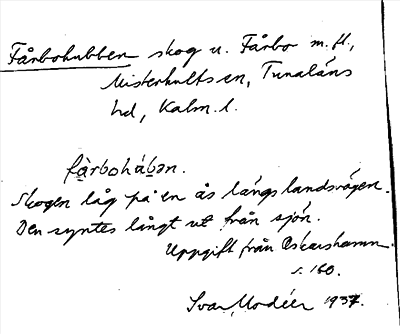 Fårbohubben skog u. Fårbo m.fl.,
Misterhults sn, Tunaläns
hd, Kalm. l.
fårbohúbən.
Skogen låg på en ås längs landsvägen.
Den syntes långt ut från sjön.
Uppgift från Oskarshamn
s. 160.
Ivar Modéer 1937.